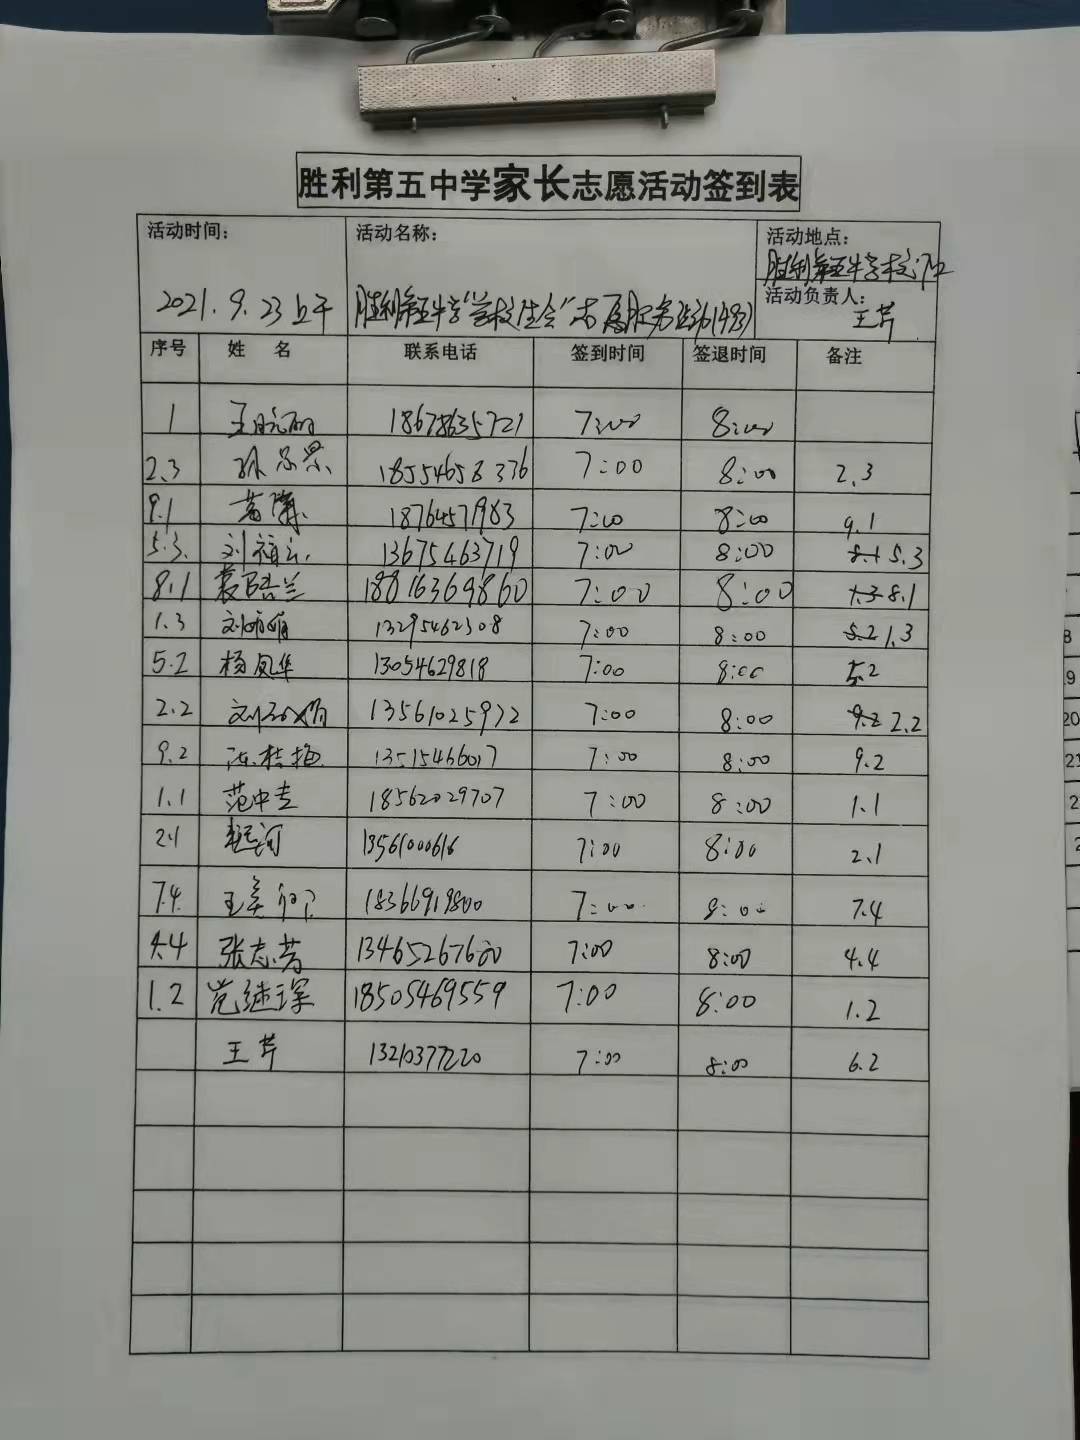 胜利第五中学家长志愿活动签到表
活动时间: 活动名称: 活动地点:
胜利第五中学校门口
2021.9.23上午 胜利第五中学"学校生会"志愿服务活动 活动负责人:
王芹
序号 姓 名 联系电话 签到时间 签退时间 备注
1 18678635721 7:00 8:00
2.3 18554658336 7:00 8:00 2.3
9.1 18764571983 7:00 8:00 9.1
5.3. 刘福云 13675463719 7:00 8:00 5.3
8.1 18816369860 7:00 8:00 8.1
1.3 13295462308 7:00 8:00 1.3
5.2 杨凤华 13054629818 7:00 8:00 5.2
2.2 13561025972 7:00 8:00 2.2
9.2 陈桂梅 13515466017 7:00 8:00 9.2
1.1 范中专 18562029707 7:00 8:00 1.1
2.1 13561000616 7:00 8:00 2.1
7.4. 18366919800 7:00 8:00 7.4
4.4 张志芳 7:00 8:00 4.4
1.2 18505469559 7:00 8:00 1.2
王芹 13210377220 7:00 8:00 6.2